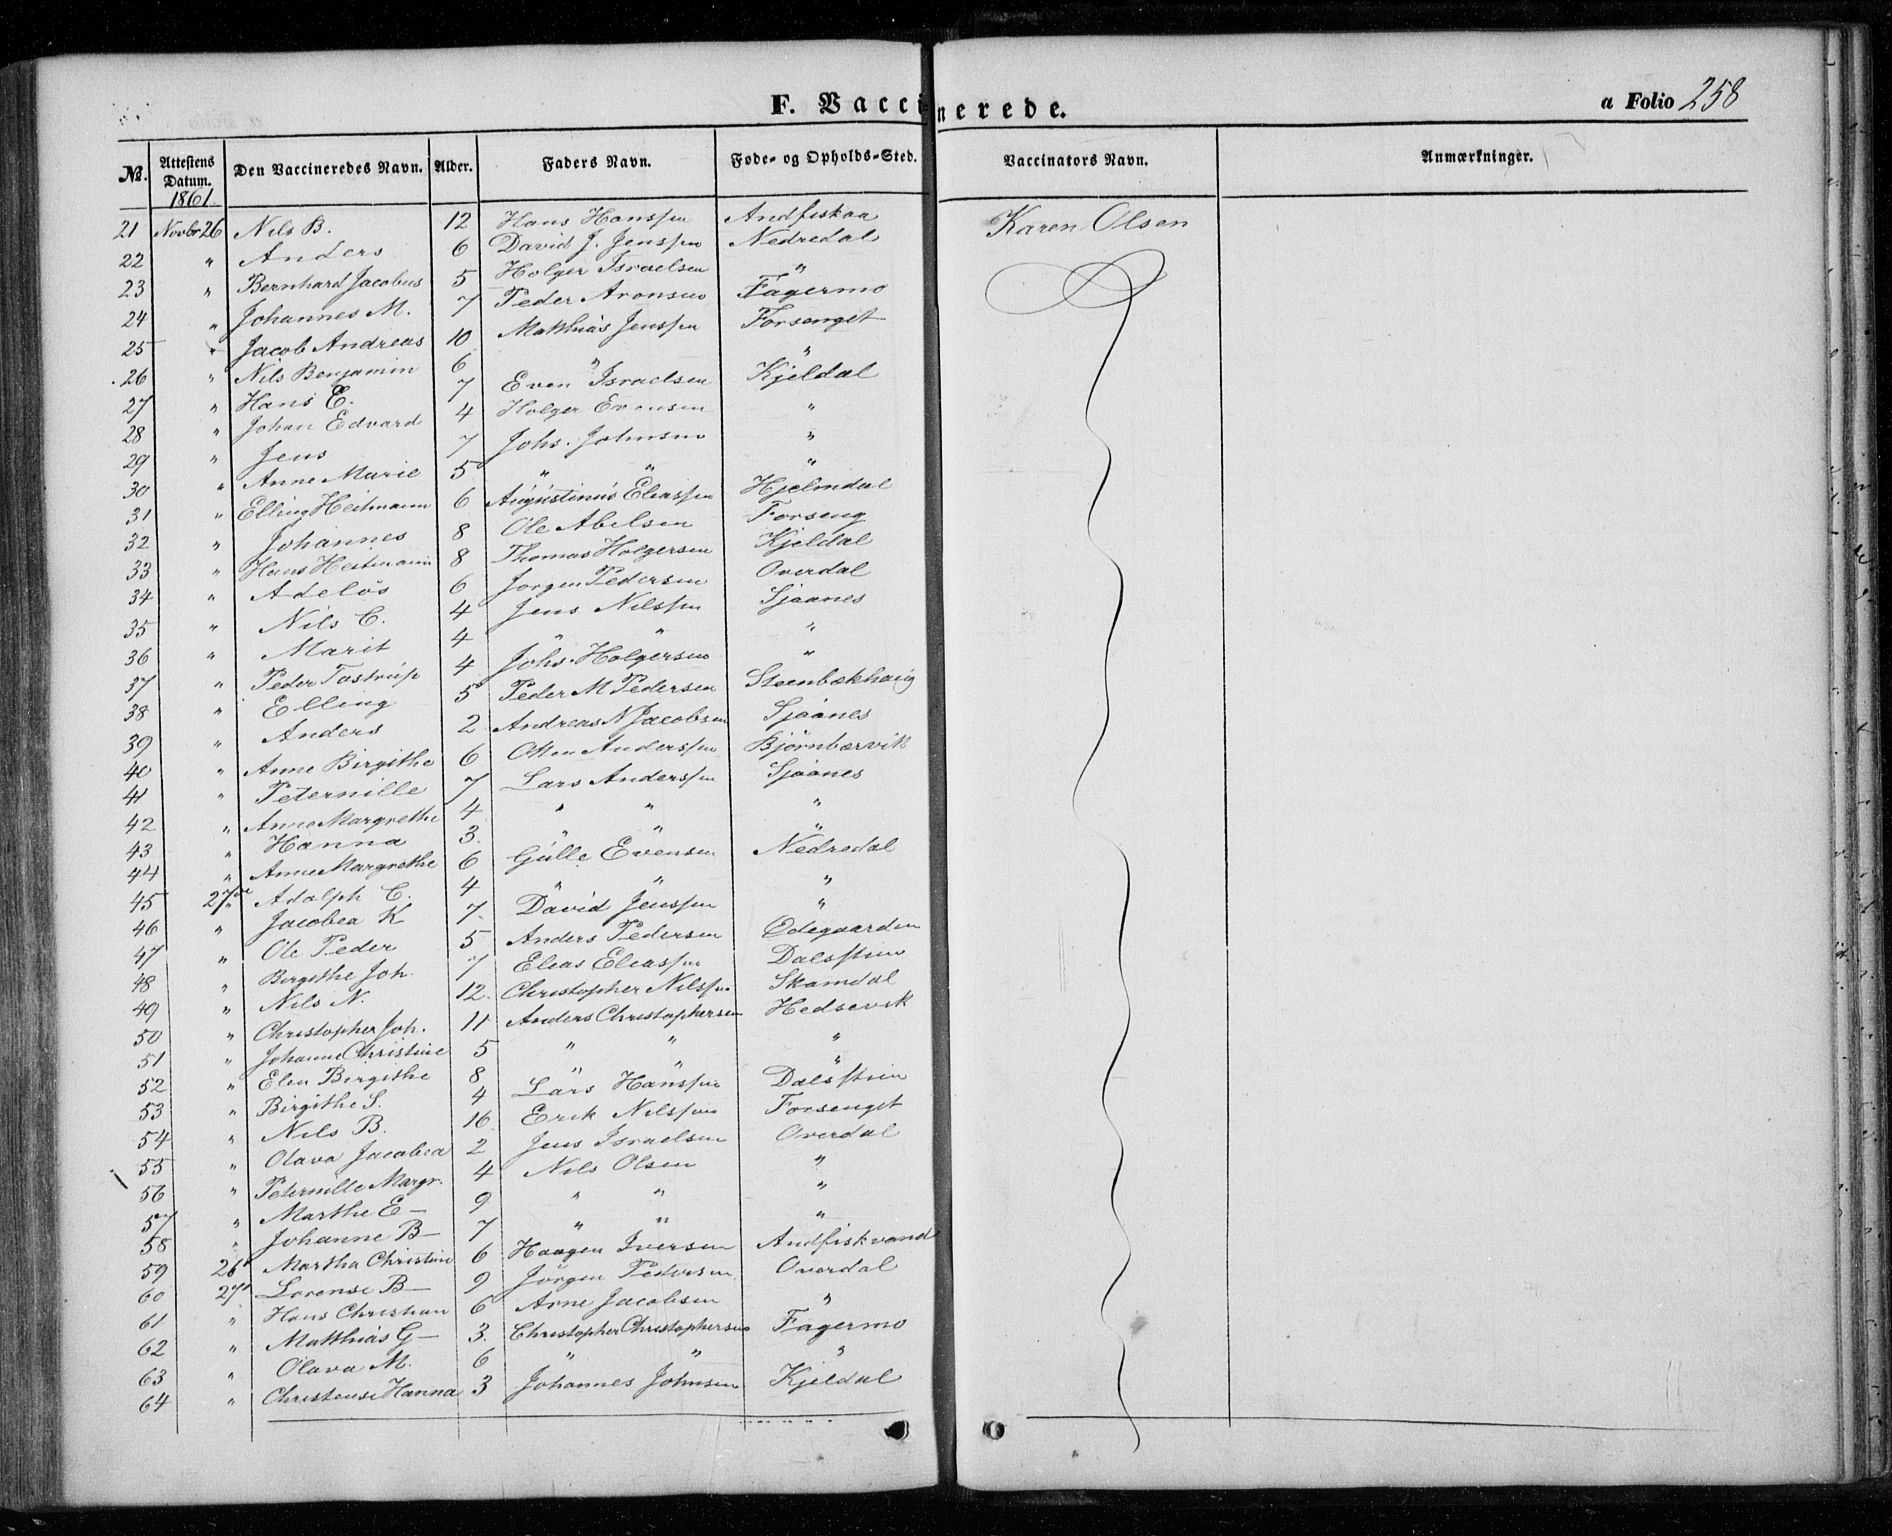 F. Vaccinerede. a Folio 258
No. Attestens Datum. Den Vaccineredes Navn. Alder. Faders Navn. Føde- og Opholds-Sted. Vaccinators Navn. Anmærkninger.
1861
21 Novbr 26 Nils B. 12 Hans Hanssen Andfiskaa Karen Olsen
22 " Anders 6 David J. Jenssen Nedredal
23 " Bernhard Jacobus 5 Holger Israelsen "
24 " Johannes M. 7 Peder Aronsen Fagermo
25 " Jacob Andreas 10 Matthias Jenssen Forsenget
26 " Nils Benjamin 6 " "
27 " Hans E. 7 Even Israelsen Kjeldal
28 " Johan Edvard 4 Holger Evensen "
29 " Jens 7 Johs. Johnsen "
30 " Anne Marie 5 " " "
31 " Elling Heitmann 6 Augustinus Eliassen Hjelmdal
32 " Johannes 8 Ole Abelsen Forseng
33 " Hans Heitmann 8 Thomas Holgersen Kjeldal
34 " Adelös 6 Jorgen Pedersen Overdal
35 " Nils C. 4 Jens Nilssen Sjaanes
36 " Marit 4 " " "
37 " Peder Tostrup 4 Johs. Holgersen "
38 " Elling 5 Peder M Pedersen Steenbækhaug
39 " Anders 2 Andreas N Jacobsen Sjaanes
40 " Anne Birgithe 6 Otten Anderssen Bjørnbærvik
41 " Peternille 7 Lars Anderssen Sjaanes
42 " Anne Margrethe 4 " " "
43 " Hanna 3. " " "
44 " Anne Margrethe 6 Gulle Evensen Nedredal
45 27de " Adolph C. 4 " " "
46 " Jacobea K 7. David Jenssen "
47 " Ole Peder 5 Anders Pedersen Ødegaarden
48 " Birgithe Joh. 7 Elias Eliassen Dalsstien
49 " Nils N. 12. Christopher Nilssen Skamdal
50 " Christopher Joh. 11 Anders Christophersen Hedsevik
51 " Johanne Christine 5 " " "
52 " Elen Birgithe 8 " " "
53 " Birgithe S. 4 Lars Hanssen Dalsstien
54 " Nils B. 16 Erik Nilssen Forsenget
55 " Olava Jacobea 2 Jens Israelsen Overdal
56 " Peternille Margr. 4 Nils Olsen "
57 " Marthe E 9 " " "
58 " Johanne B 7 " " "
59 26 Martha Christine 6 Haagen Iversen Andfiskvand
60 27 Lorense B 9 Jörgen Pedersen Overdal
61 " Hans Christian 6 Arne Jacobsen "
62 " Matthias G 3. Christopher Christophersen Fagermo
63 " Olava M. 6 " " "
64 " Christense Hanna 3 Johannes Johnsen Kjeldal